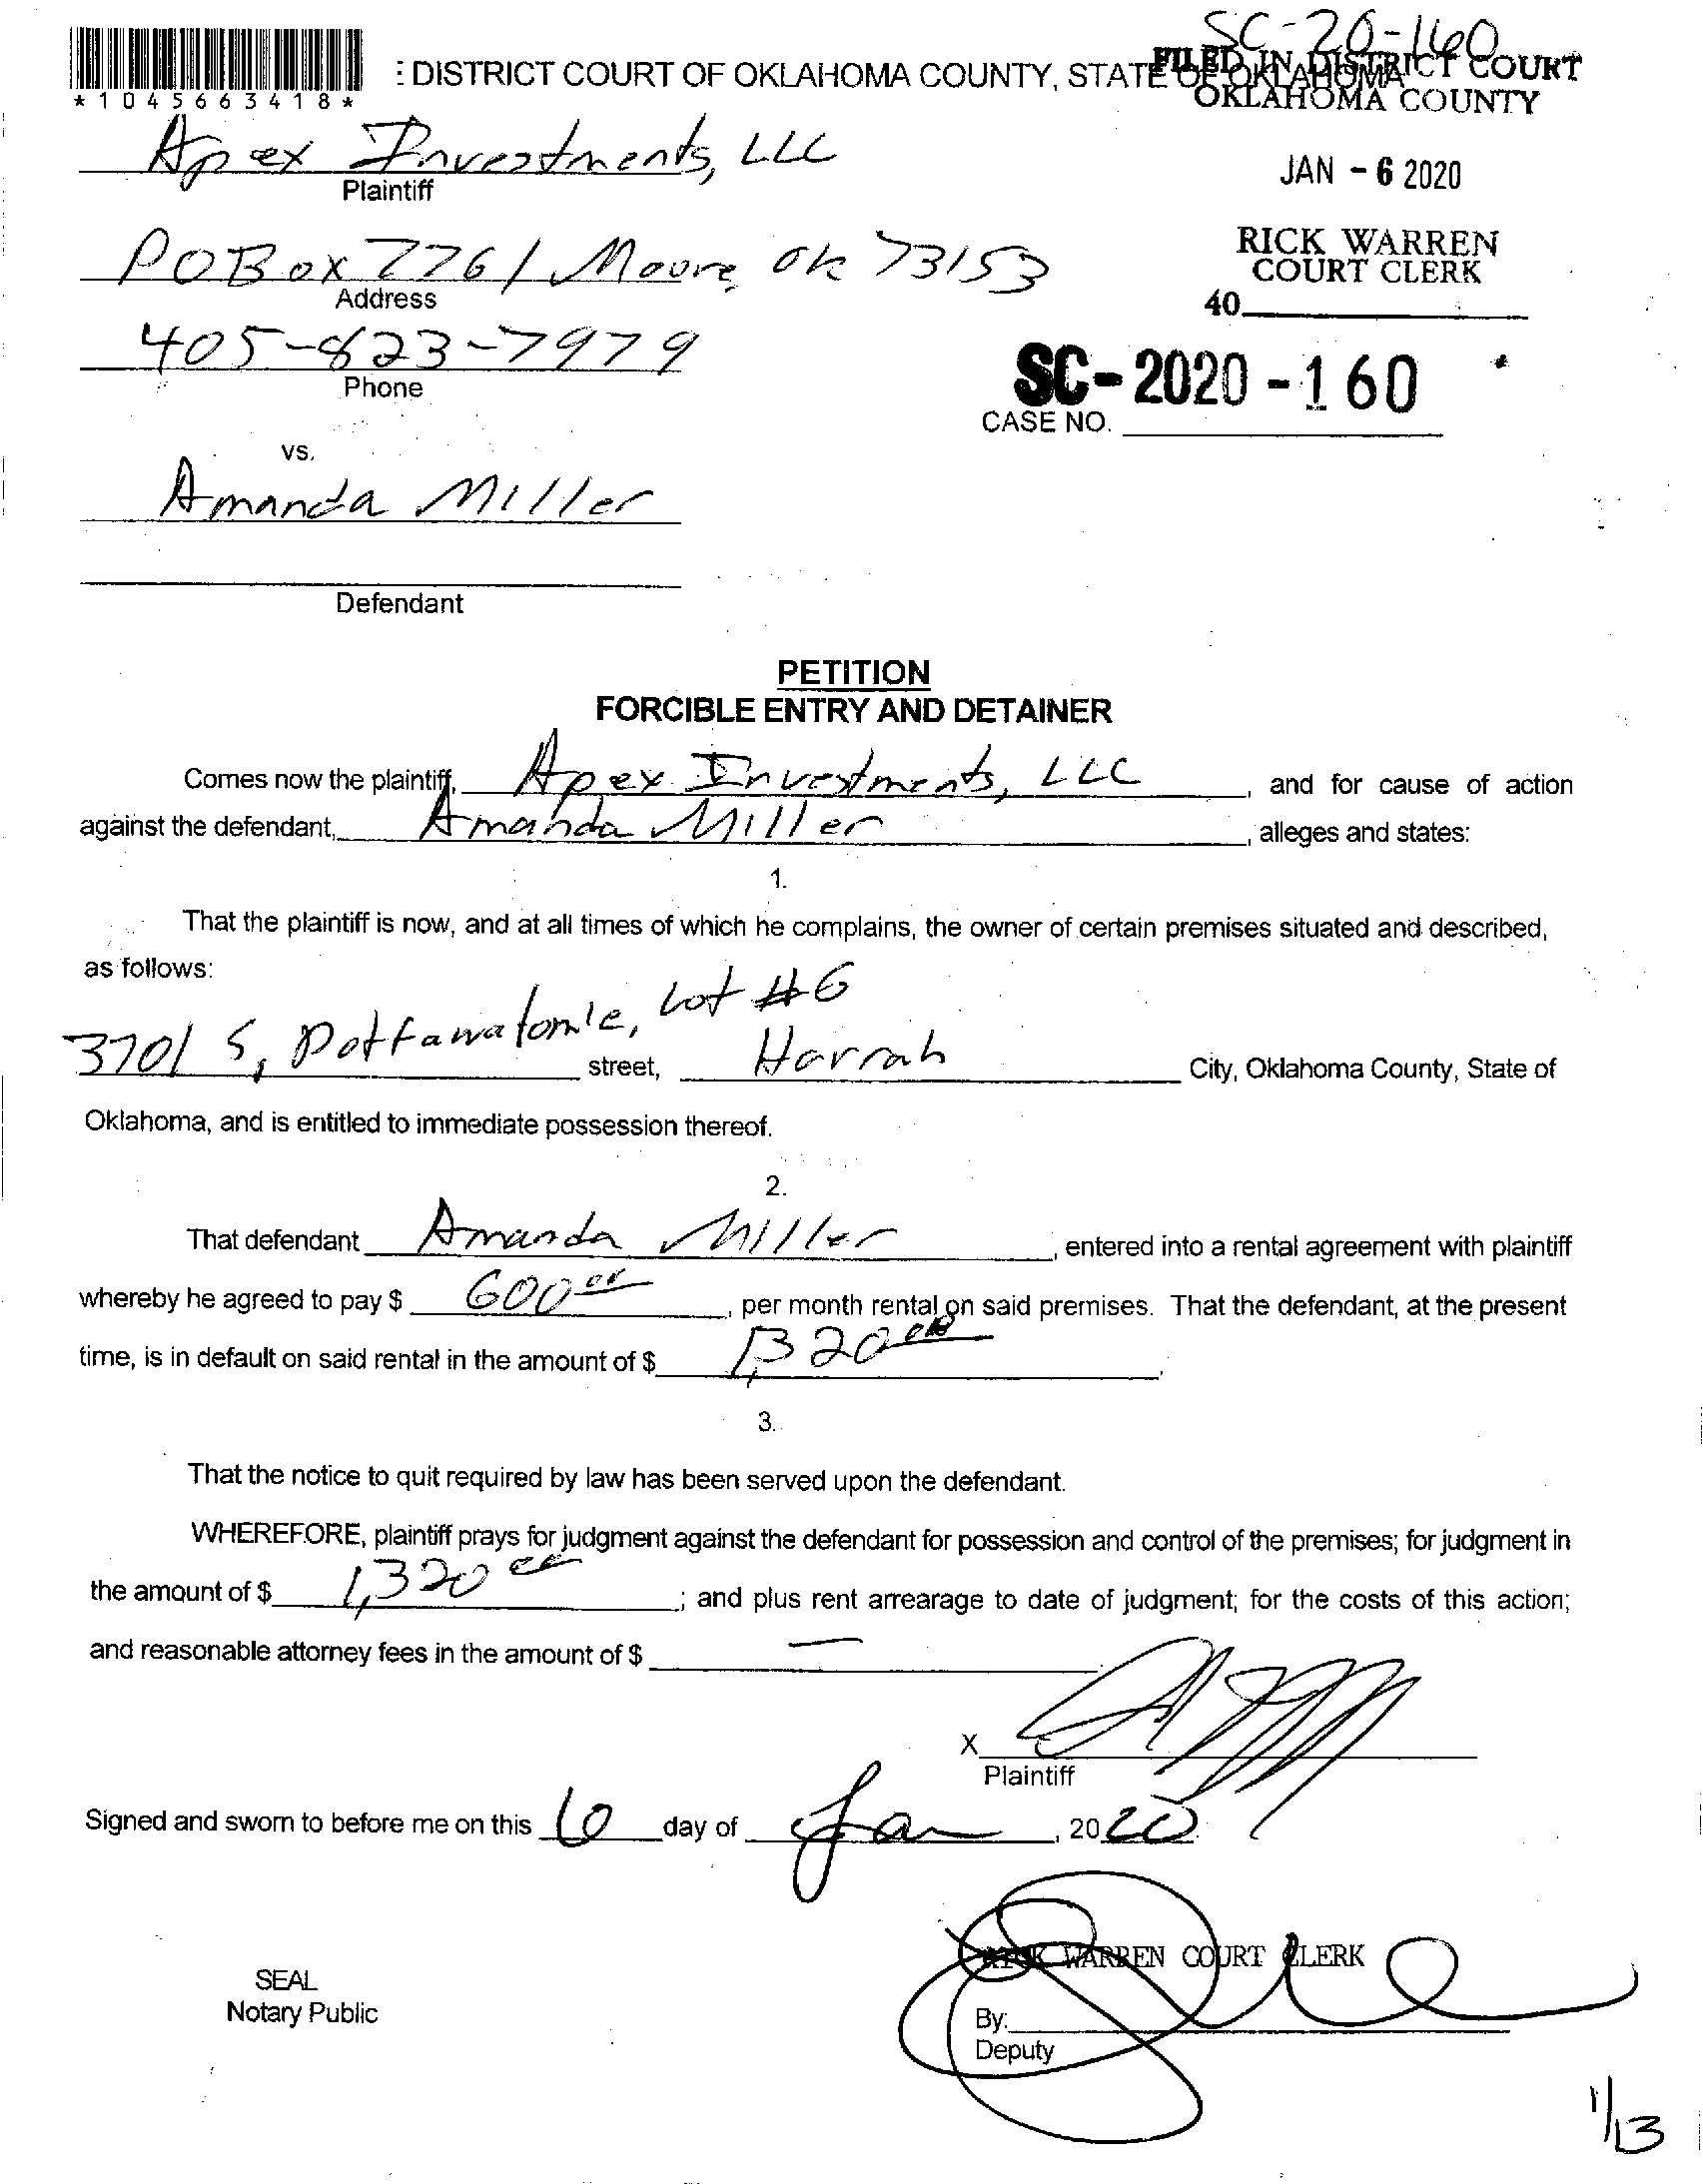 SC-20-160
: DISTRICT COURT OF OKLAHOMA COUNTY, STATE OF OKLAHOMA
FILED IN DISTRICT COURT
OKLAHOMA COUNTY
*1045663418*
Apex Investments, LLC
Plaintiff
JAN - 6 2020
RICK WARREN
COURT CLERK
40
PO Box 7761 Moore, OK 73153
Address
405-823-7979
Phone
SC-2020-160
CASE NO.
vs.
Amanda Miller
Defendant
PETITION
FORCIBLE ENTRY AND DETAINER
Comes now the plaintiff, Apex Investments, LLC, and for cause of action
against the defendant, Amanda Miller, alleges and states:
1.
That the plaintiff is now, and at all times of which he complains, the owner of certain premises situated and described,
as follows:
3701 S, Pottawatomie, Lot #6 street, Harrah City, Oklahoma County, State of
Oklahoma, and is entitled to immediate possession thereof.
2.
That defendant Amanda Miller, entered into a rental agreement with plaintiff
whereby he agreed to pay $ 600 00, per month rental on said premises. That the defendant, at the present
time, is in default on said rental in the amount of $ 1,320 00.
3.
That the notice to quit required by law has been served upon the defendant.
WHEREFORE, plaintiff prays for judgment against the defendant for possession and control of the premises; for judgment in
the amount of $ 1,320 00; and plus rent arrearage to date of judgment; for the costs of this action;
and reasonable attorney fees in the amount of $ —
X
Plaintiff
Signed and sworn to before me on this 6 day of Jan, 2020
RICK WARREN COURT CLERK
SEAL
Notary Public
By:
Deputy
1/13